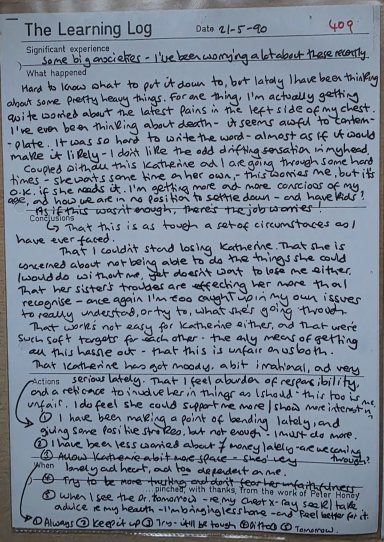 The Learning Log
Date 21-5-90
409
Significant experience
Some big anxieties - I've been worrying a lot about these recently.
What happened
Hard to know what to put it down to, but lately I have been thinking
about some pretty heavy things. For one thing, I'm actually getting
quite worried about the latest pains in the left side of my chest.
I've even been thinking about death - it seems awful to contem-
- plate. It was so hard to write the word - almost as if it would
make it likely - I don't like the odd drifting sensation in my head.
Coupled with all this Katherine and I are going through some hard
times - she wants some time on her own, - this worries me, but it's
O.K. if she needs it. I'm getting more and more conscious of my
age, and how we are in no position to settle down - and have kids?
As if this wasn't enough, there's the job worries!
Conclusions
That this is as tough a set of circumstances as I
have ever faced.
That I couldn't stand losing Katherine. That she is
concerned about not being able to do the things she could
/would do without me, yet doesn't want to lose me either.
That her sister's troubles are effecting her more than I
recognise - once again I'm too caught up in my own issues
to really understand, or try to, what she's going through.
That work's not easy for Katherine either, and that we're
such soft targets for each other - the only means of getting
all this hassle out - that this is unfair on us both.
That Katherine has got moody, a bit irrational, and very
serious lately. That I feel a burden of responsibility,
and a reticence to involve her in things as I should - this too is
unfair. I do feel she could support me more / show more interest in
Actions
① I have been making a point of lately, and
giving some positive strokes, but not enough - I must do more.
② I have been less worried about money lately - are we coming through?
③ Allow Katherine a bit more space - she's very
lonely at heart, and too dependent on me.
When
④ Try to be more trusting and don't fear her unfaithfulness
pinched, with thanks, from the work of Peter Honey
⑤ When I see the Dr. tomorrow - re my chest x-ray seek / take
advice re my health - I'm bringing less home - and feel better for it.
① Always ② Keep it up ③ Try - will be tough ④ Ditto ⑤ Tomorrow.